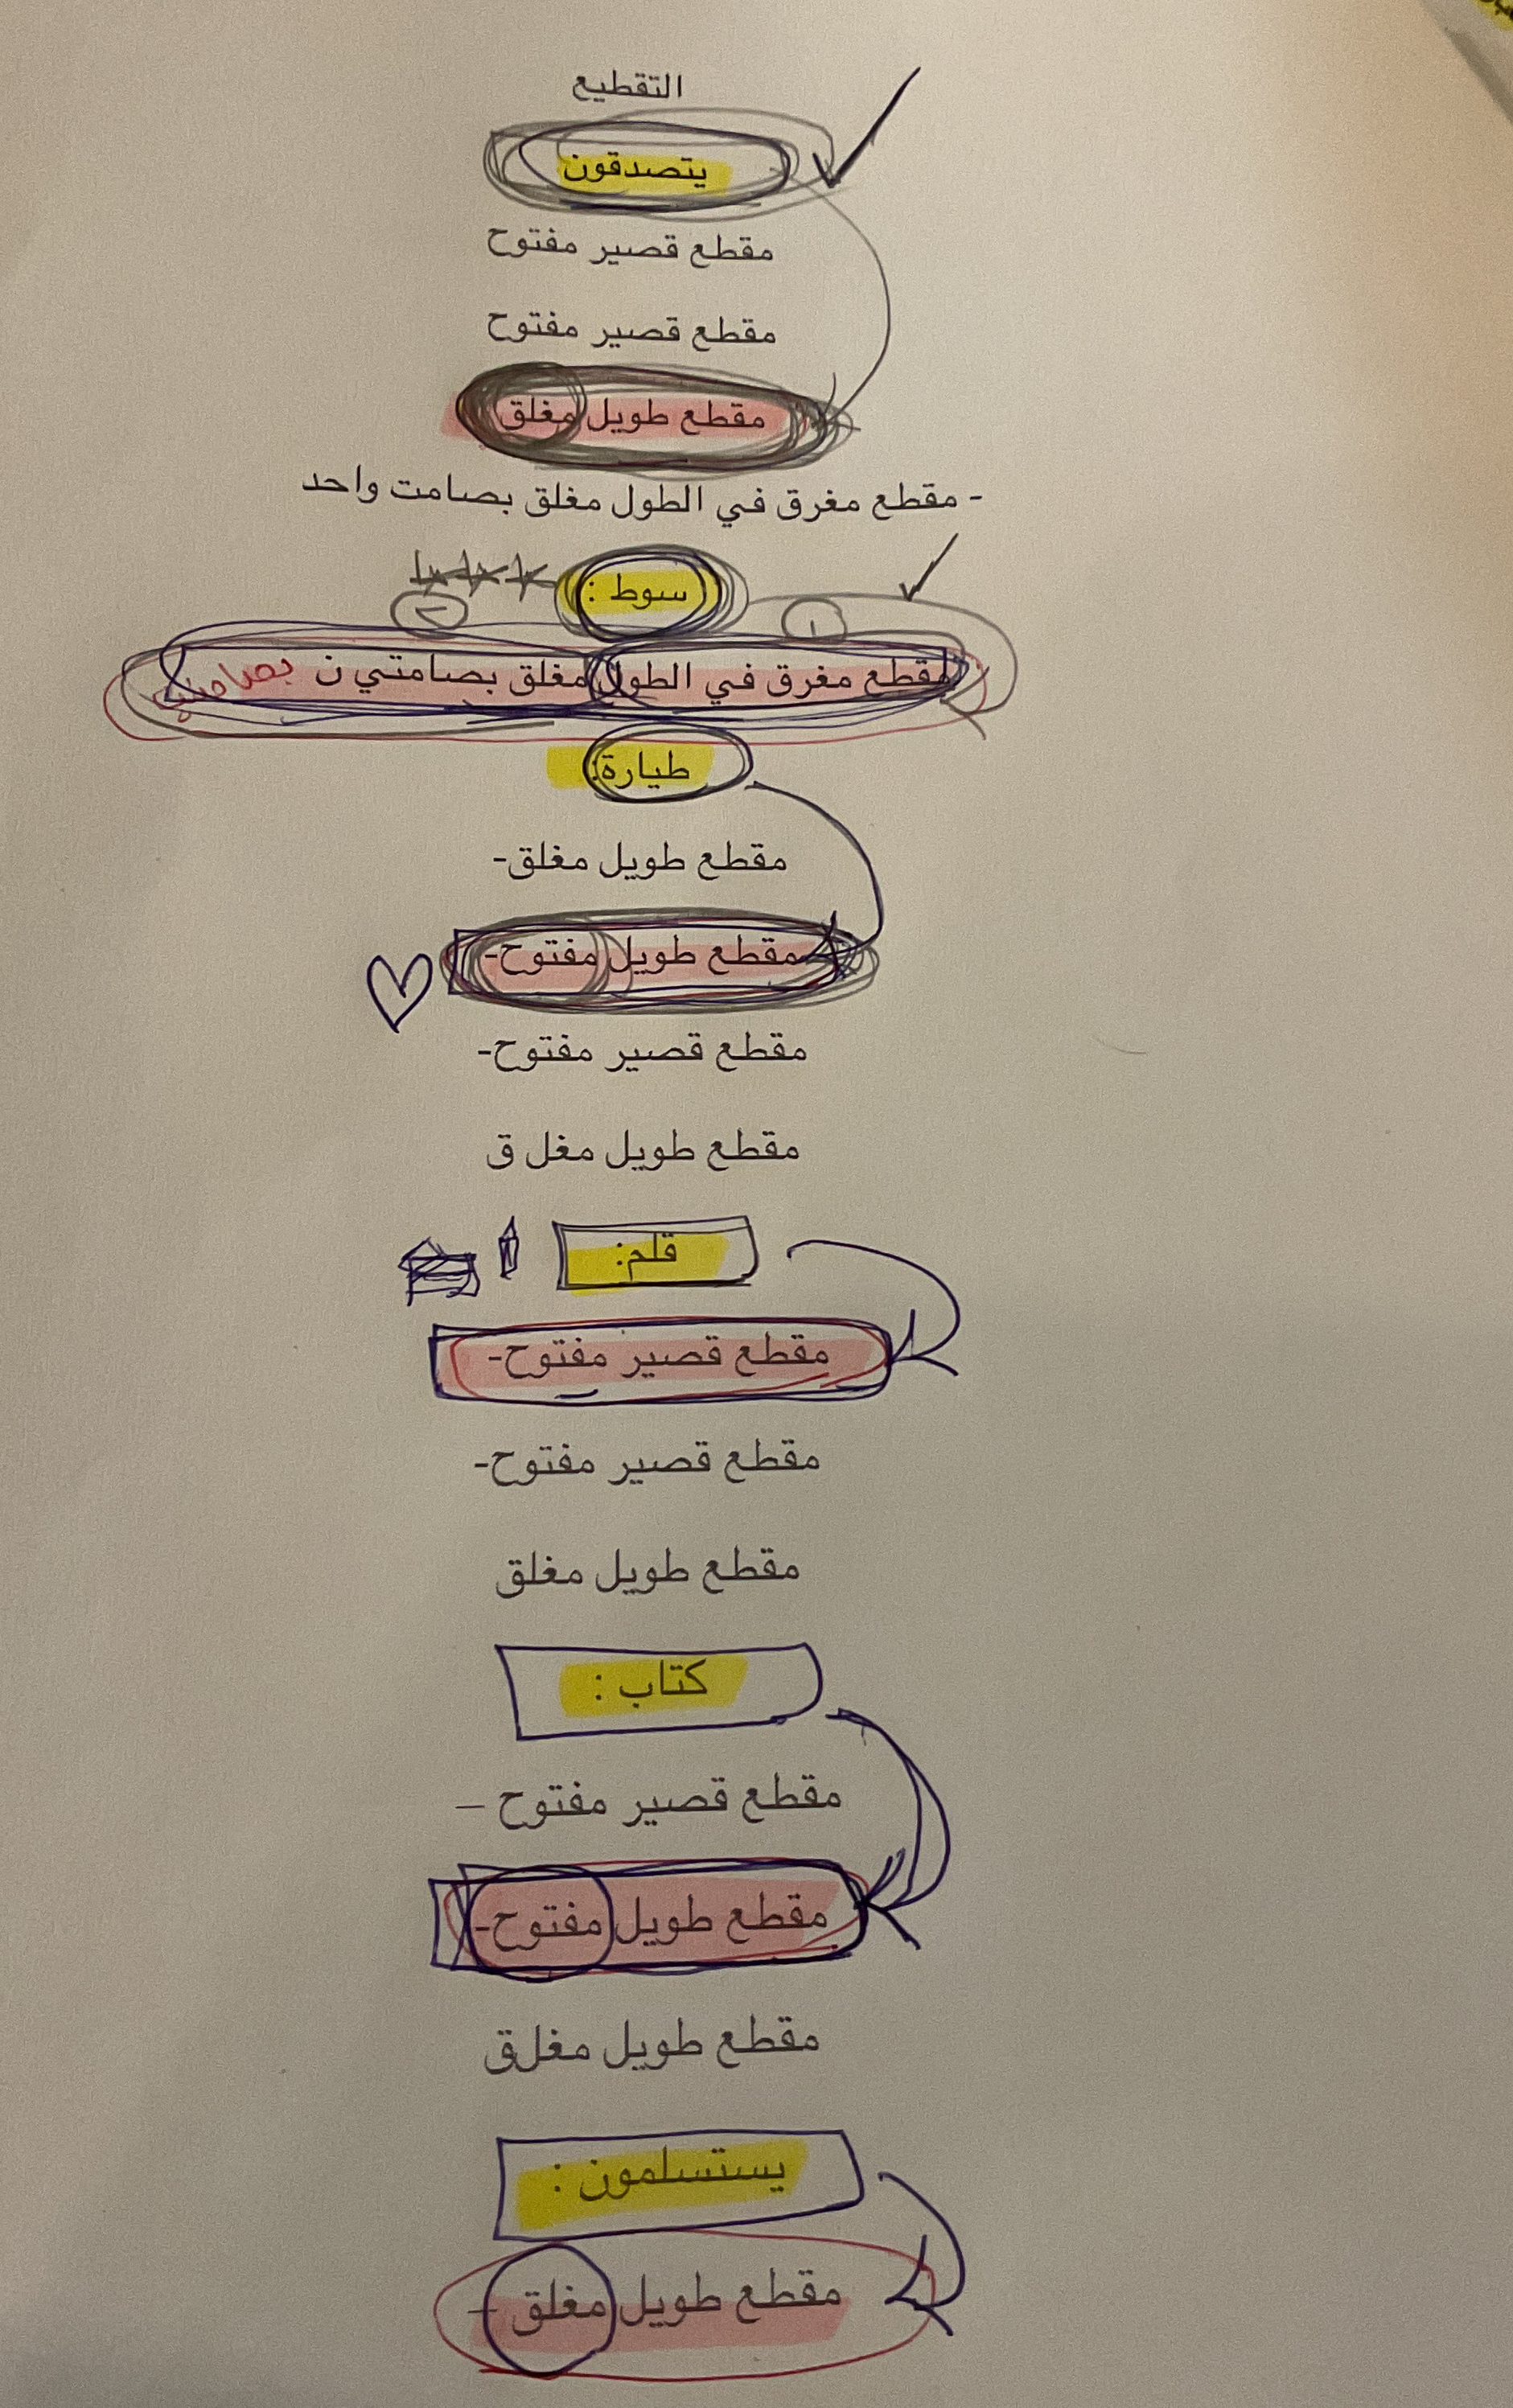 التقطيع
يتصدقون
مقطع قصير مفتوح
مقطع قصير مفتوح
مقطع طويل مغلق
- مقطع مغرق في الطول مغلق بصامت واحد
سوط :
١
٢
مقطع مغرق في الطول مغلق بصامتي ن
طيارة:
مقطع طويل مغلق-
مقطع طويل مفتوح-
مقطع قصير مفتوح-
مقطع طويل مغل ق
قلم:
مقطع قصير مفتوح-
مقطع قصير مفتوح-
مقطع طويل مغلق
كتاب :
مقطع قصير مفتوح –
مقطع طويل مفتوح-
مقطع طويل مغلق
يستسلمون :
مقطع طويل مغلق –